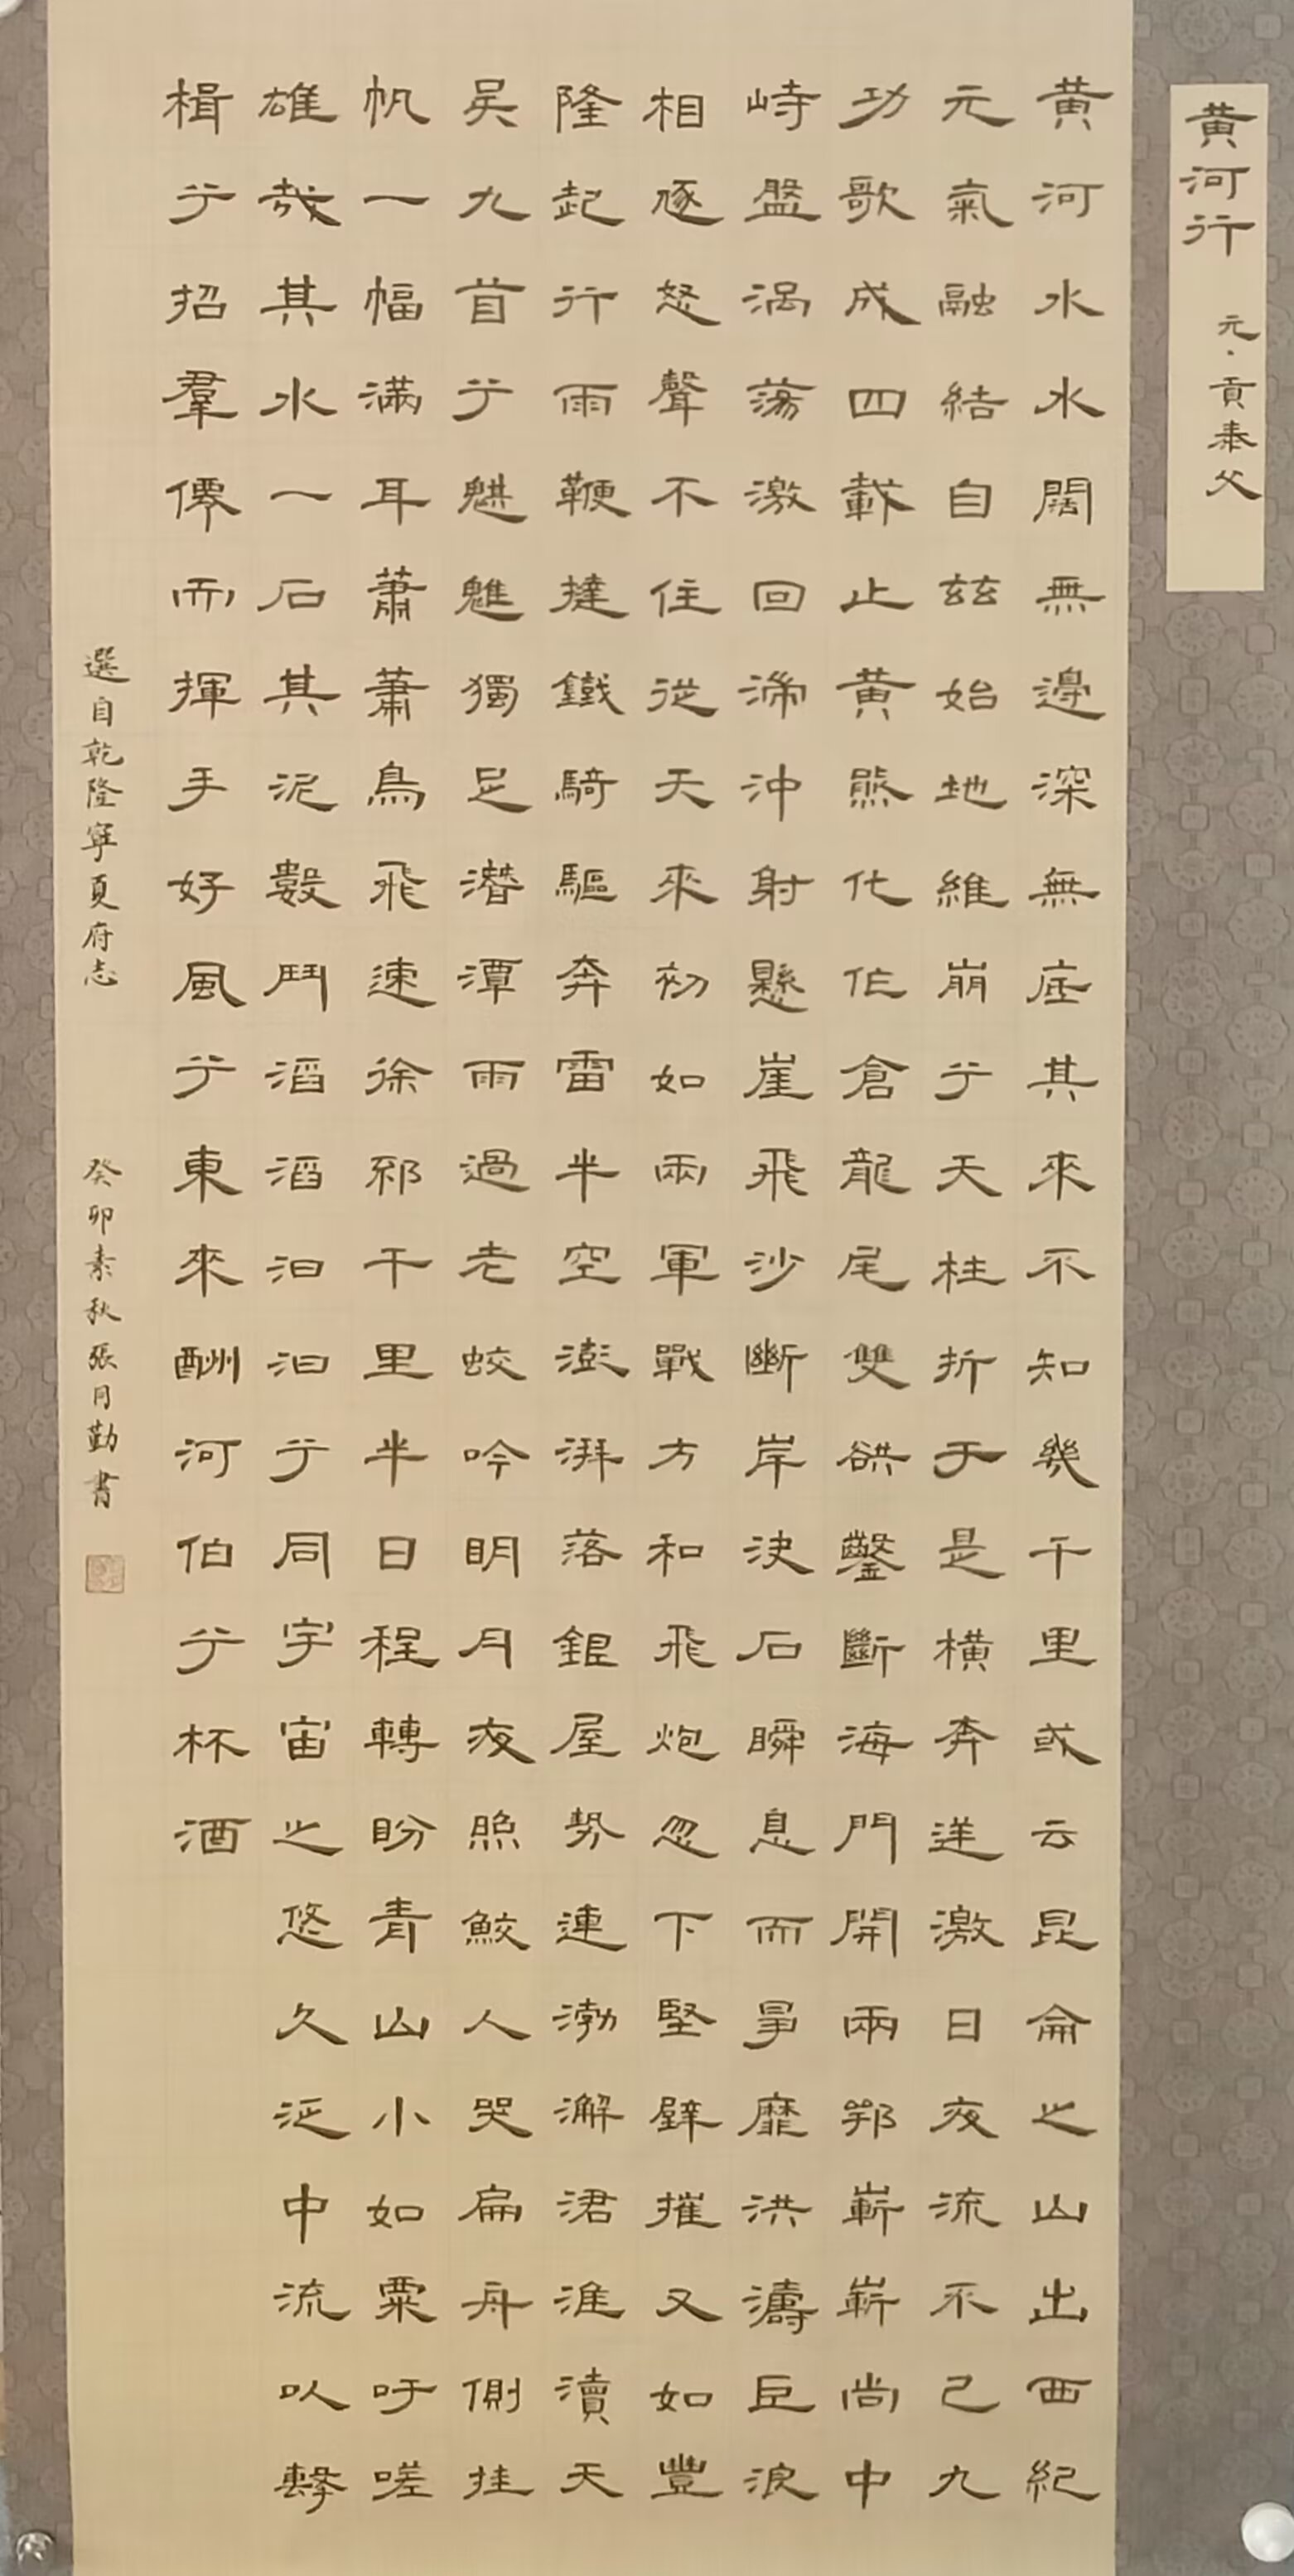 黄河行 元·貢泰父
黄河水水闊無邊深無底其來不知幾千里或云昆侖之山出西紀
元氣融結自兹始地維崩兮天柱折于是橫奔逆激日夜流不已九
功歌成四載止黄熊化作倉龍尾雙谼鑿斷海門開兩鄂嶄嶄尚中
峙盤渦蕩激回沖射懸崖飛沙斷岸決石瞬息而爭靡洪濤巨浪
相豗怒聲不住從天來初如兩軍戰方和飛炮忽下堅壁摧又如豐
隆起行雨鞭撻鐵騎驅奔雷半空澎湃落銀屋勢連渤澥涒淮瀆天
吴九首兮魌魋獨足潛潭雨過老蛟吟明月夜照鮫人哭扁舟側挂
帆一幅滿耳蕭蕭鳥飛速徐邳千里半日程轉盼青山小如粟吁嗟
雄哉其水一石其泥數鬥滔滔汩汩兮同宇宙之悠久泛中流以擊
楫兮招羣僊而揮手好風兮東來酬河伯兮杯酒
選自乾隆寧夏府志 癸卯素秋張月勤書